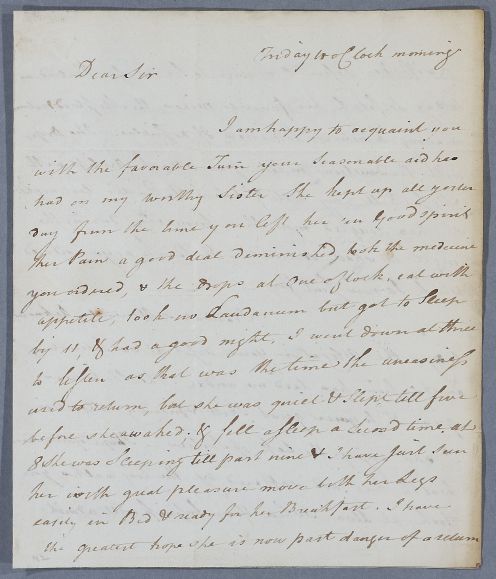 Friday 10 oClock morning
Dear Sir
I am happy to acquaint you
with the favorable Turn your seasonable aid has
had on my worthy Sister She kept up all yester
day from the time you left her in Good spirits
Her Pain a good deal diminished, took the medecine
you ordered, & the drops at One oClock, eat with
appetite, took no Laudanum but got to Sleep
by 11, & had a good night, I went down at three
to listen as that was the time the uneasiness
used to return, but she was quiet & slept till five
before she awaked; & fell asleep a second time, at
8 she was Sleeping till past nine & I have Just seen
her with great pleasure move both her Legs
easily in Bed & ready for her Breakfast. I have
the greatest hope she is now past danger of a return